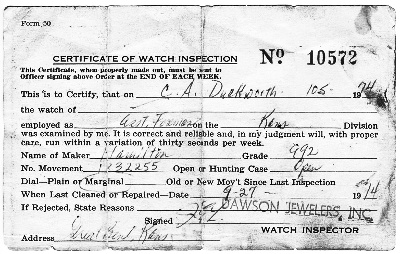 Form 50
CERTIFICATE OF WATCH INSPECTION
This Certificate, when properly made out, must be sent to
Officer signing above Order at the END OF EACH WEEK.
No 10572
This is to Certify, that on C. A. Duckworth 105- 1974
the watch of
employed as on the Kans Division
was examined by me. It is correct and reliable and, in my judgment will, with proper
care, run within a variation of thirty seconds per week.
Name of Maker Hamilton Grade 992
No. Movement 1232255 Open or Hunting Case Open
Dial—Plain or Marginal Old or New Mov't Since Last Inspection
When Last Cleaned or Repaired—Date 9-27- 1974
If Rejected, State Reasons DAWSON JEWELERS, INC.
Signed
WATCH INSPECTOR
Address Great Bend, Kans